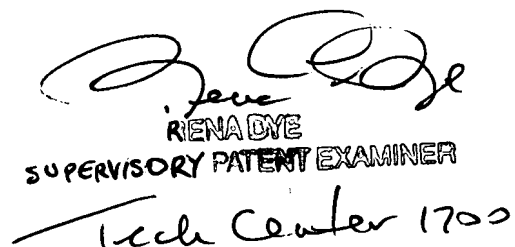 Rena Dye
RENA DYE
SUPERVISORY PATENT EXAMINER
Tech Center 1700